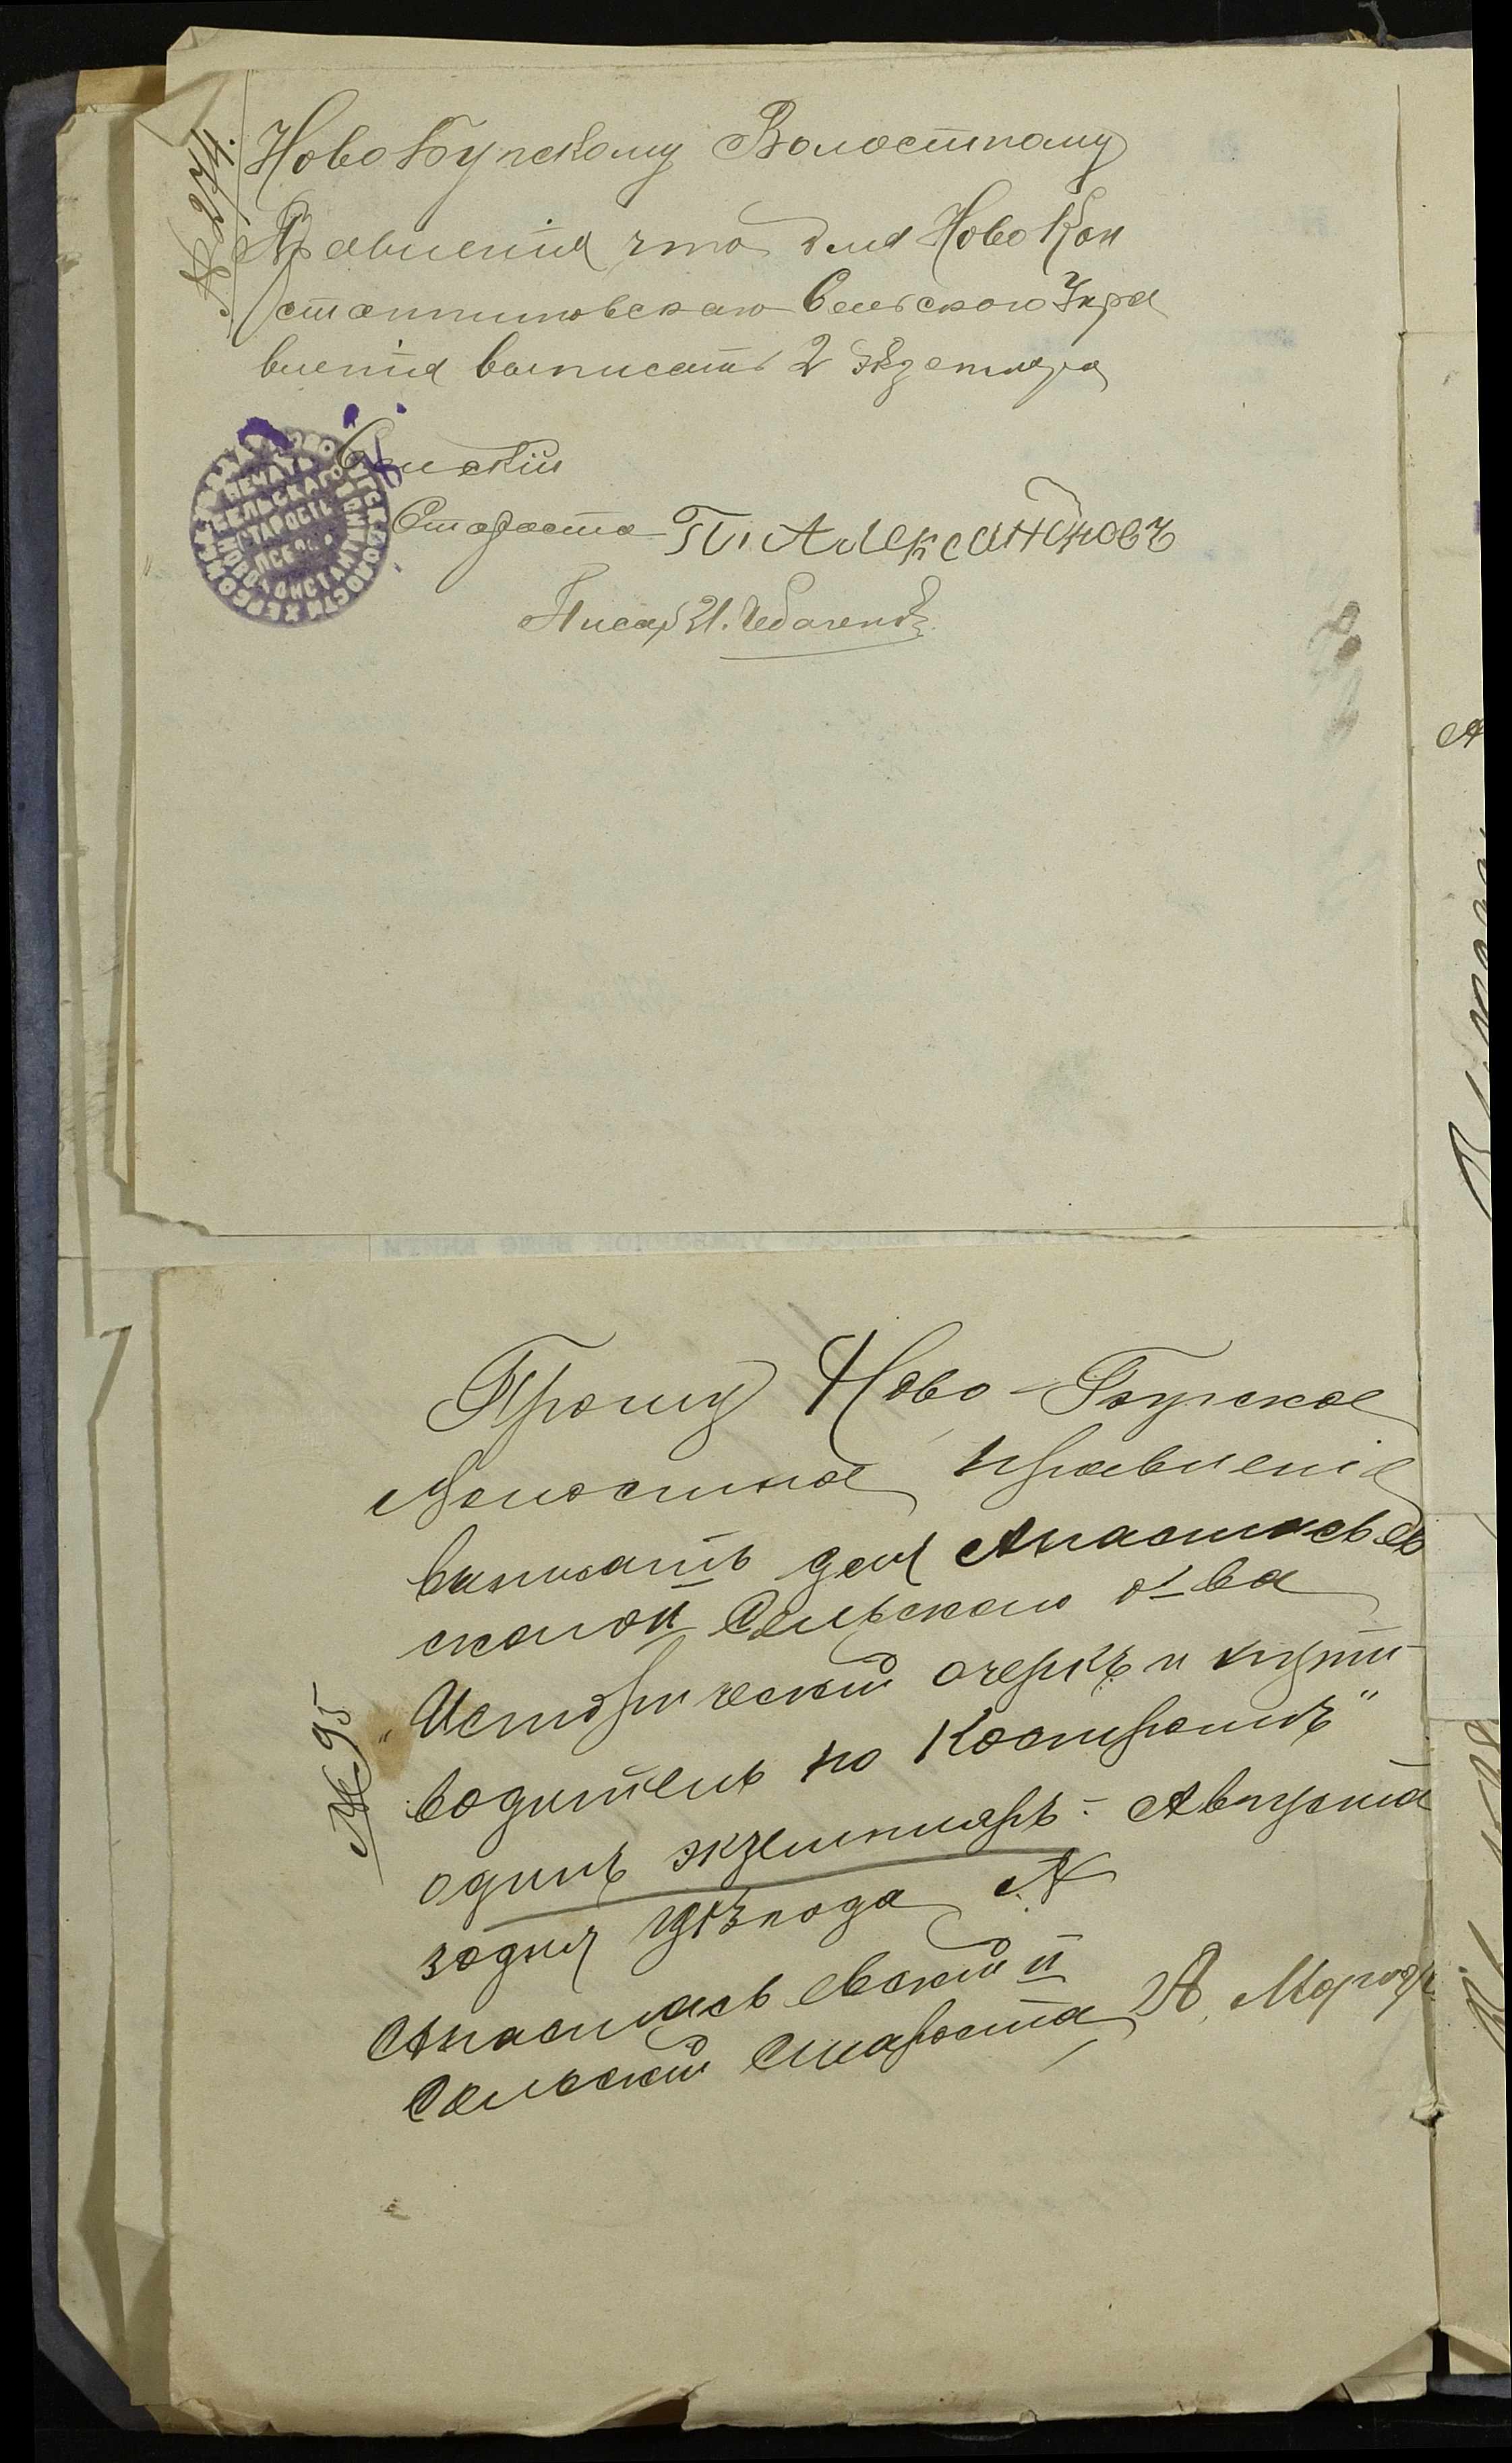 № 274.
Ново Бугскому Волостному
Правленія что для Ново Кон
стантиновскаго Сельского Упра
вленія выписать 2 экземпляра
Сельскій
Староста П. Александровъ
Писарь И.
ПЕЧАТЬ
СЕЛЬСКАГО
СТАРОСТЫ
НОВОКОНСТАНТИН
Прошу Ново-Бугское
Волостное правленіе
выписать для Анастасьев
ской II Сельскаго о-ва
„Историческій очеркъ и путе-
водитель по Костромѣ"
одинъ экземпляръ - Августа
30 дня 1913 года
№ 95
Анастасьевскій II
Сельскій Староста А.